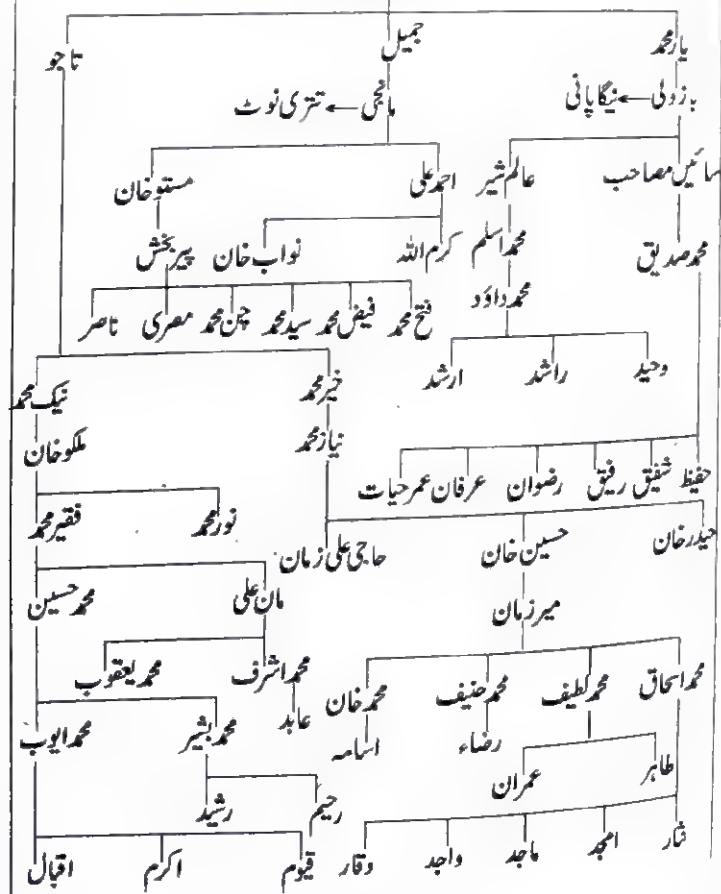 یار محمد جمیل تاجو
بزولی ← نیگاپانی مانجی ← تتری نوٹ
سائیں مصاحب عالم شیر احمد علی مستو خان
محمد صدیق محمد اسلم کرم اللہ نواب خان پیر بخش
محمد داؤد فتح محمد فیض محمد سید محمد چن محمد مصری ناصر
وحید راشد ارشد خیر محمد نیک محمد
نیاز محمد ملکو خان
حفیظ شفیق رفیق رضوان عرفان عمر حیات
نور محمد فقیر محمد
حیدر خان حسین خان حاجی علی زمان
میر زمان مان علی محمد حسین
محمد اسحاق محمد لطیف محمد حنیف محمد خان محمد اشرف محمد یعقوب
رضاء اسامہ عابد محمد بشیر محمد ایوب
طاہر عمران رحیم رشید
نثار امجد ماجد واجد وقار قیوم اکرم اقبال